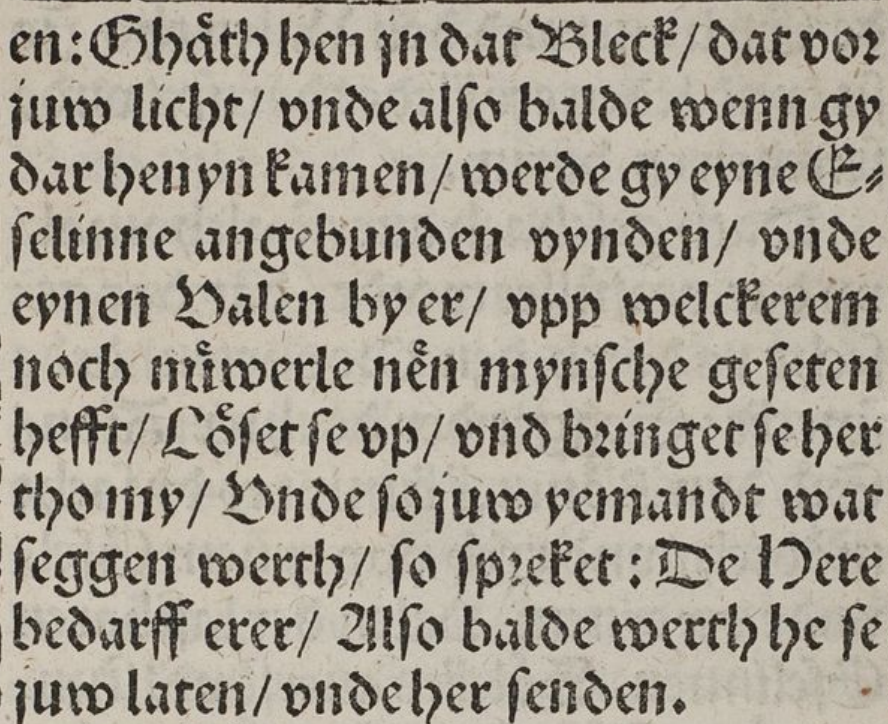 en: Ghåth hen jn dat Bleck/ dat vor
juw licht/ vnde also balde wenn gy
dar henyn kamen/ werde gy eyne E⸗
selinne angebunden vynden/ vnde
eynen Valen by er/ vpp welckerem
noch nuͤwerle neͤn mynsche geseten
hefft/ Loͤset se vp/ vnd bringet se her
tho my/ Vnde so juw yemandt wat
seggen werth/ so spreket: De Here
bedarff erer/ Also balde werth he se
juw laten/ vnde her senden.